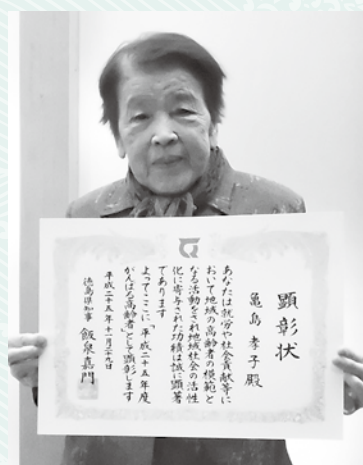 顕彰状
亀島孝子殿
あなたは就労や社会貢献等に
おいて地域の高齢者の模範と
なる活動をされ地域社会の活性
化に寄与された功績は誠に顕著
であります
よってここに「平成二十五年度
がんばる高齢者」として顕彰します
平成二十五年十一月二十九日
徳島県知事 飯泉嘉門